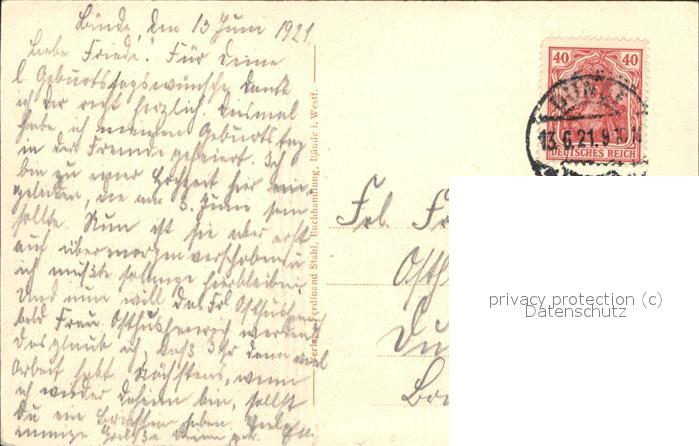 Bünde, den 13 Juni 1921.
Liebe Friede! Für Deine
l. Geburtstagswünsche danke
ich Dir recht herzlich. Diesmal
habe ich meinen Geburtstag
in der Fremde gefeiert. Ich
bin zu einer Hochzeit hier ein-
geladen, die am 3. Juni sein
sollte. Nun ist sie aber erst
auf übermorgen verschoben u
ich mußte solange hierbleiben.
Und nun will das Frl
bald Frau werden
Das glaub ich, daß Ihr denn viel
Arbeit habt. Nächstens, wenn
ich wieder daheim bin, sollst
Du ein haben.
innige Grüße Deine
Verlag: Ferdinand Stahl, Buchhandlung, Bünde i. Westf.
40 40
DEUTSCHES REICH
BÜNDE
13.6.21.9
Frl. Fr
Osth
Dü
privacy protection (c)
Datenschutz